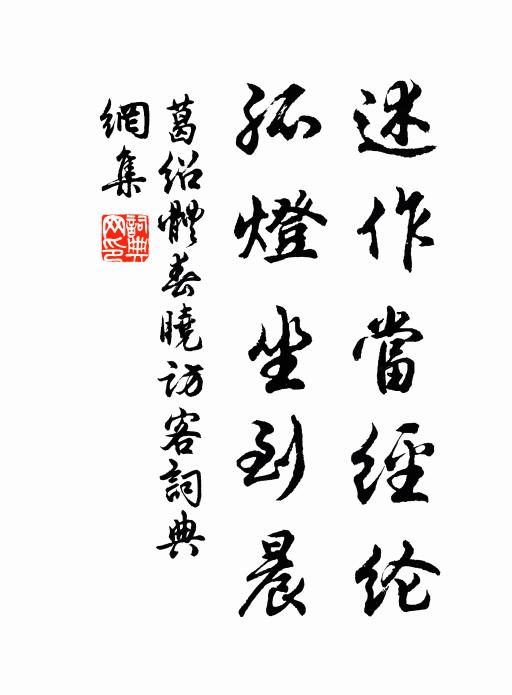 述作當經纶
孤燈坐到晨
葛绍體春曉訪客詞典
網集
詞典网印